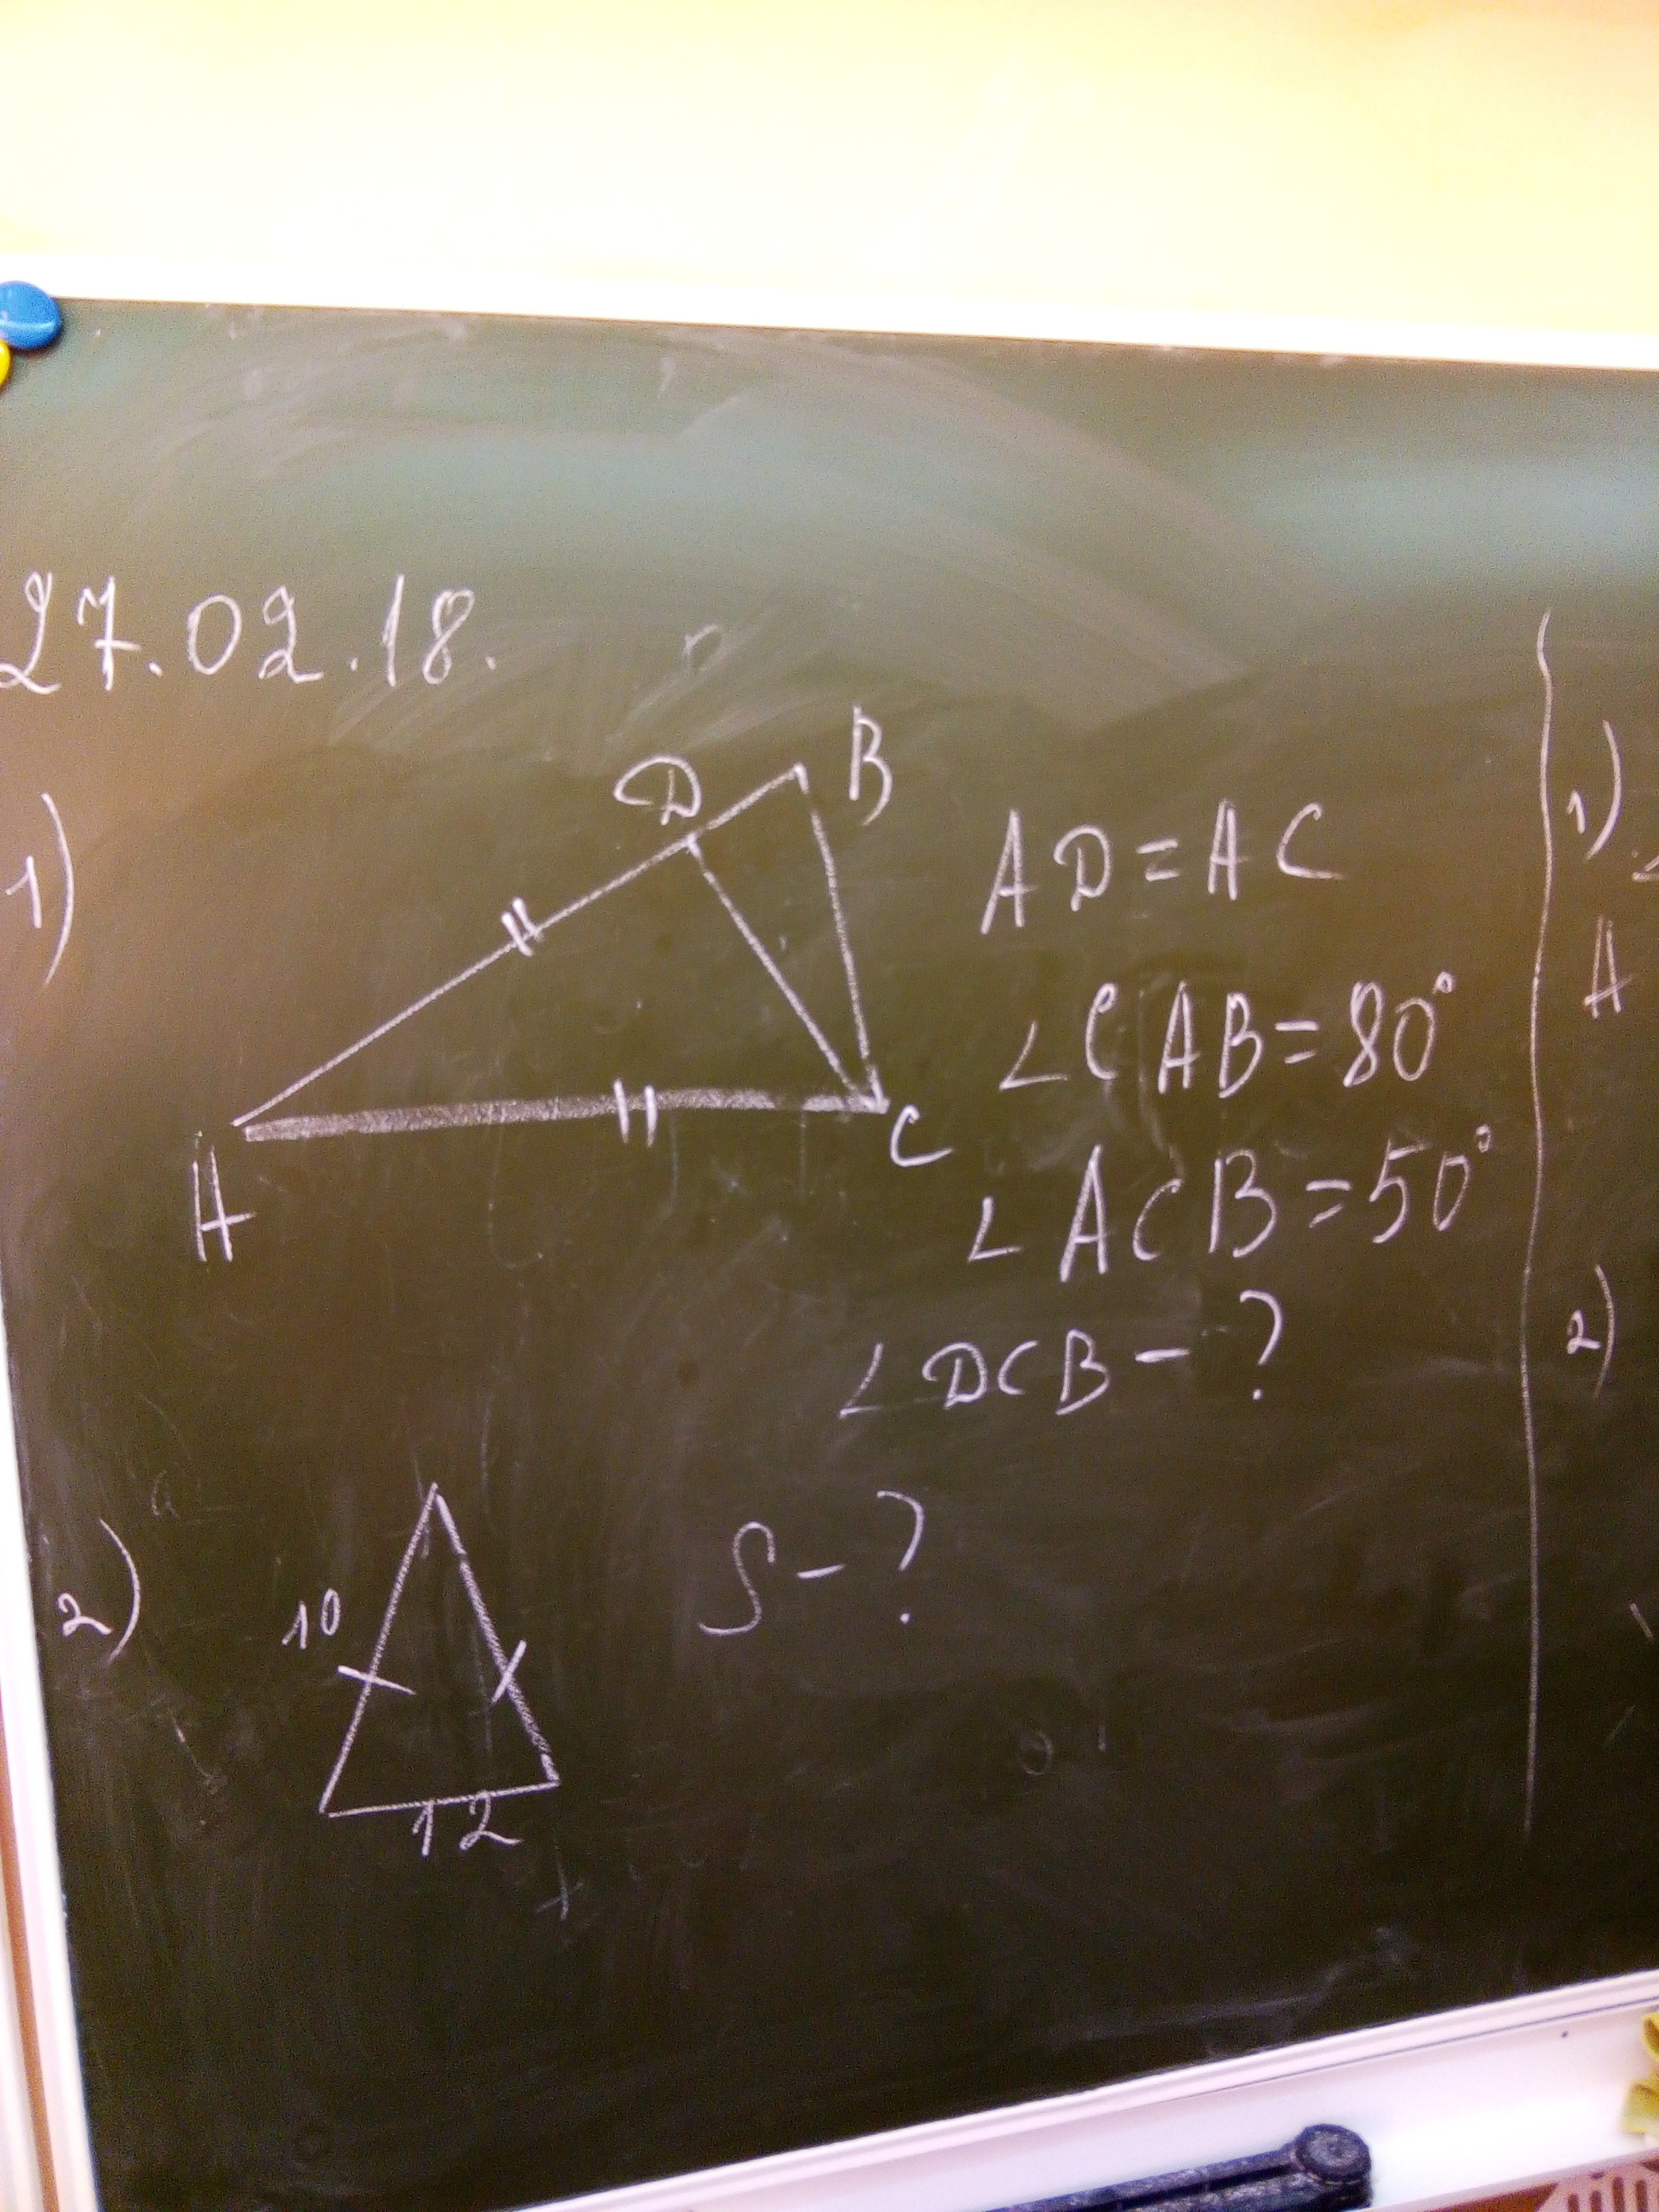 27.02.18.
1)
D B
A C
AD = AC
∠CAB = 80°
∠ACB = 50°
∠DCB - ?
2)
10
12
S - ?
1)
A
2)